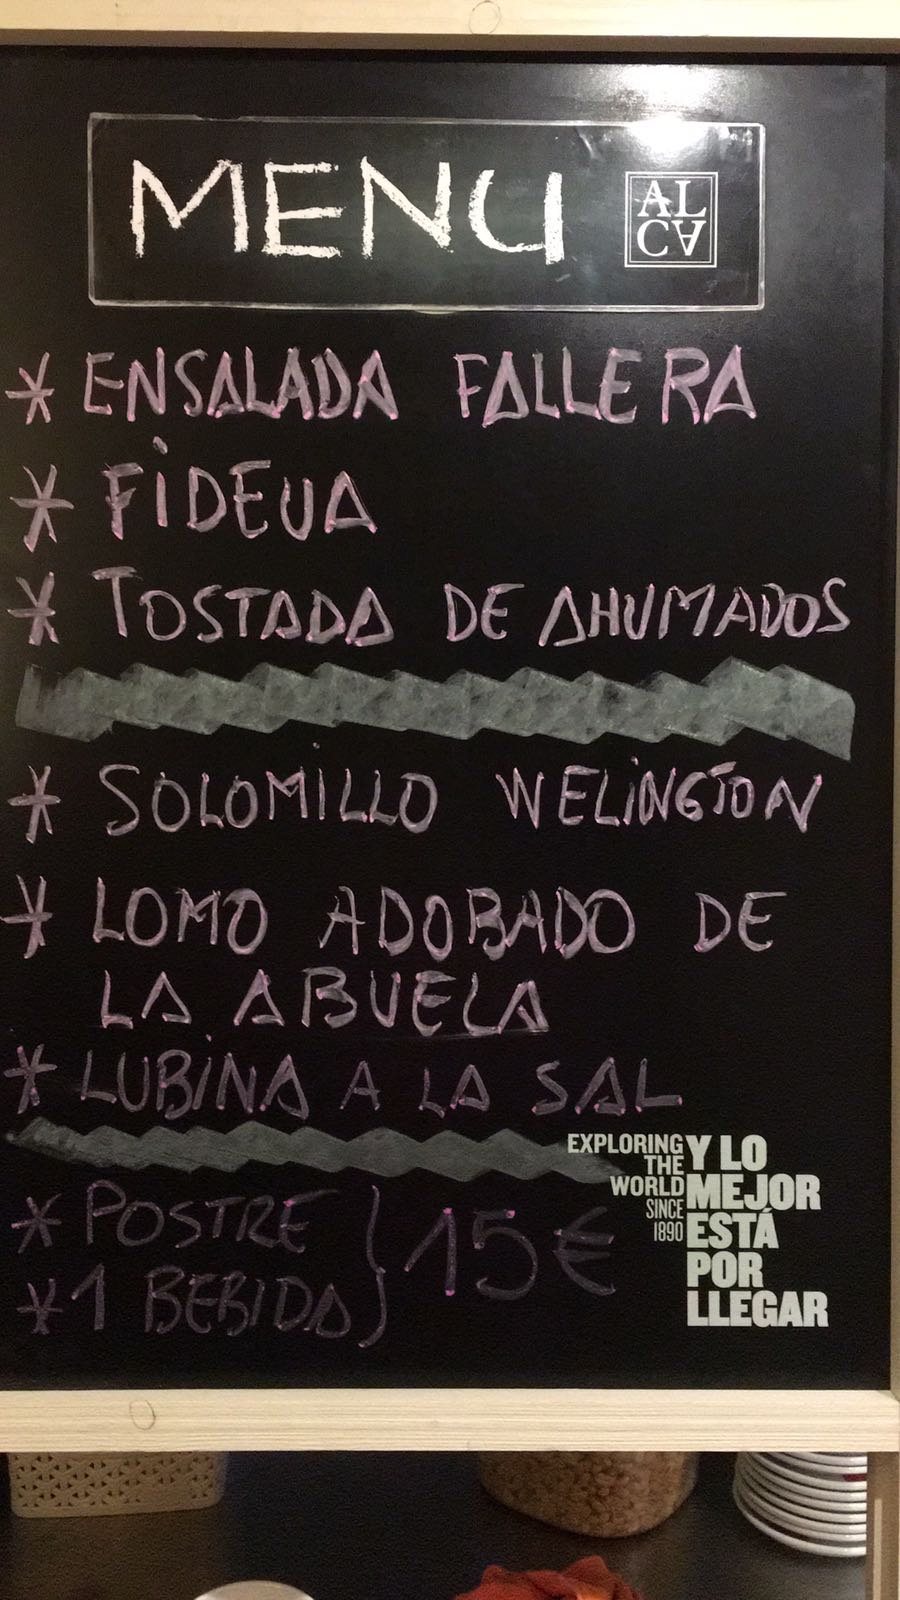 MENU
AL
CA
* ENSALADA FALLERA
* FiDEUA
* TOSTADA DE AHUMADOS
* SOLOMiLLO WELiNGTON
* LOMO ADOBADO DE
LA ABUELA
* LUBiNA A LA SAL
* POSTRE
* 1 BEBIDA } 15€
EXPLORING
THE
WORLD
SINCE
1890
Y LO
MEJOR
ESTÁ
POR
LLEGAR